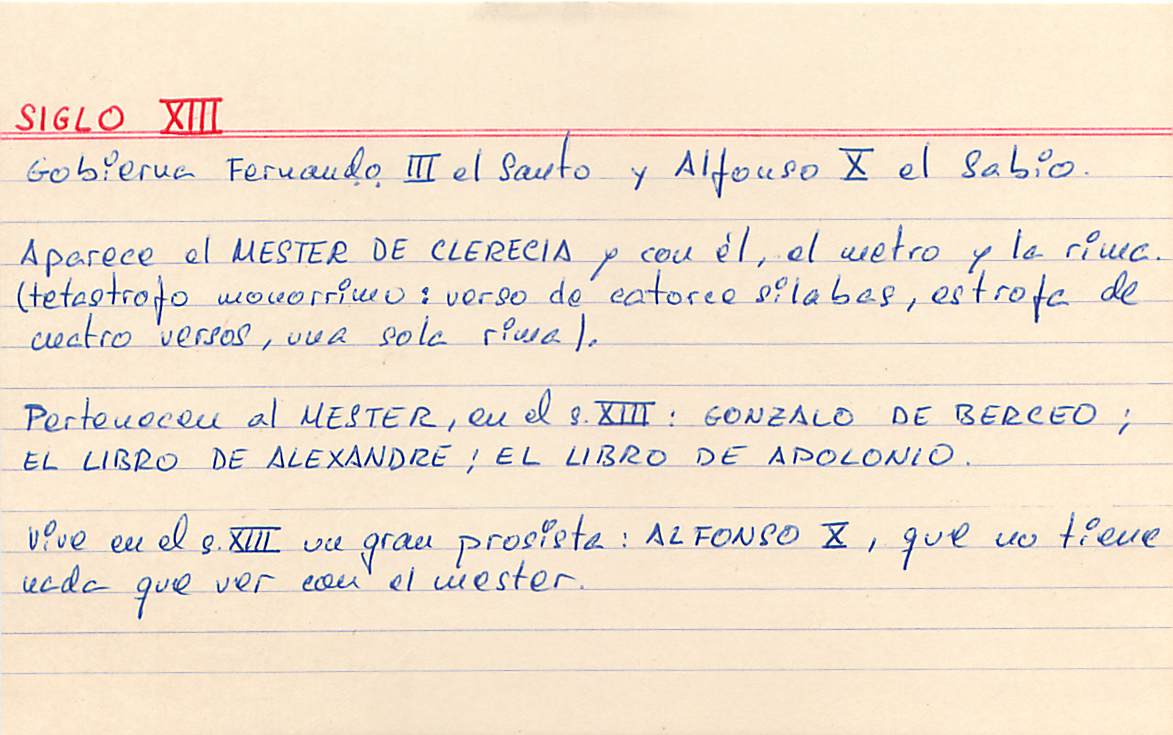 SIGLO XIII
Gobierna Fernando III el Santo y Alfonso X el Sabio.
Aparece el MESTER DE CLERECIA y con él, el metro y la rima.
(tetastrofo monorrimo : verso de catorce sílabas, estrofa de
cuatro versos, una sola rima).
Pertenecen al MESTER, en el s. XIII : GONZALO DE BERCEO ;
EL LIBRO DE ALEXANDRE ; EL LIBRO DE APOLONIO.
Vive en el s. XIII un gran prosista : ALFONSO X, que no tiene
nada que ver con el mester.